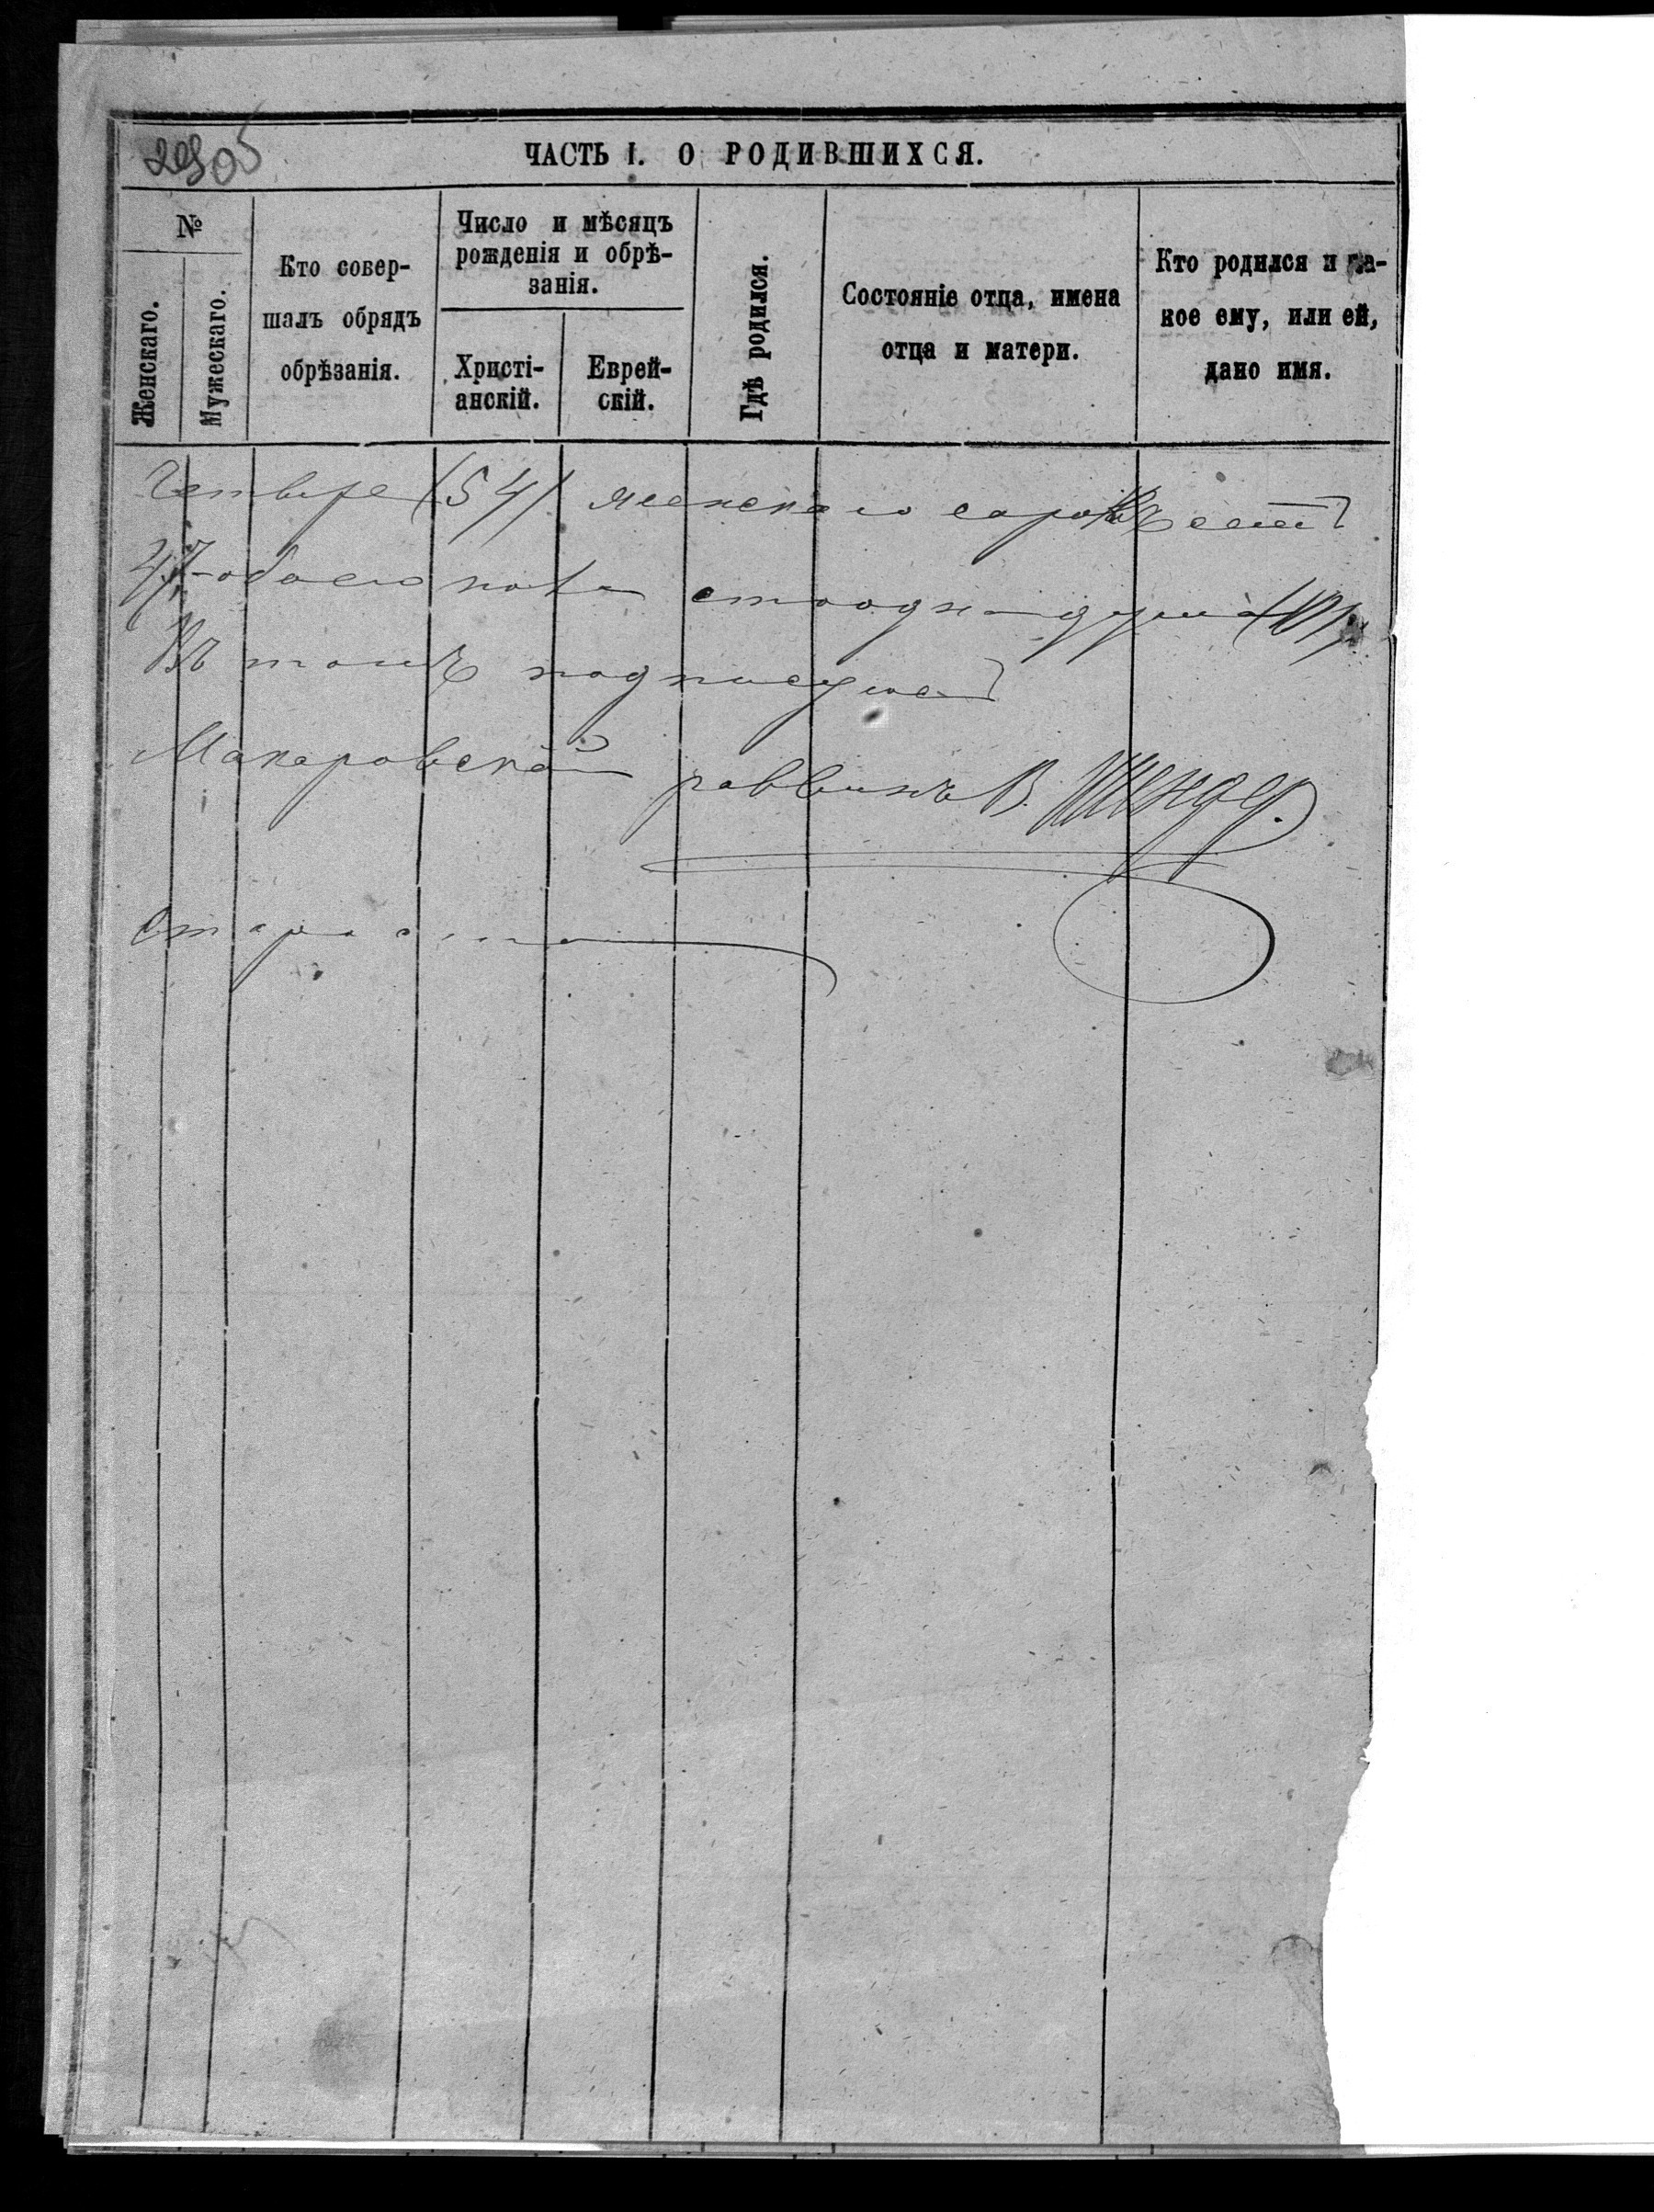 ЧАСТЬ I. О РОДИВШИХСЯ.
№
Женскаго.
Мужескаго.
Кто совер-
шалъ обрядъ
обрѣзанія.
Число и мѣсяцъ
рожденія и обрѣ-
занія.
Христі-
анскій.
Еврей-
скій.
Гдѣ родился.
Состояніе отца, имена
отца и матери.
Кто родился и ка-
кое ему, или ей,
дано имя.
Четыре (54) женскаго сорокъ семь
47 обоего пола сто одна душа (101)
Въ томъ подписуюсь
Макаровскій раввинъ В.
Староста